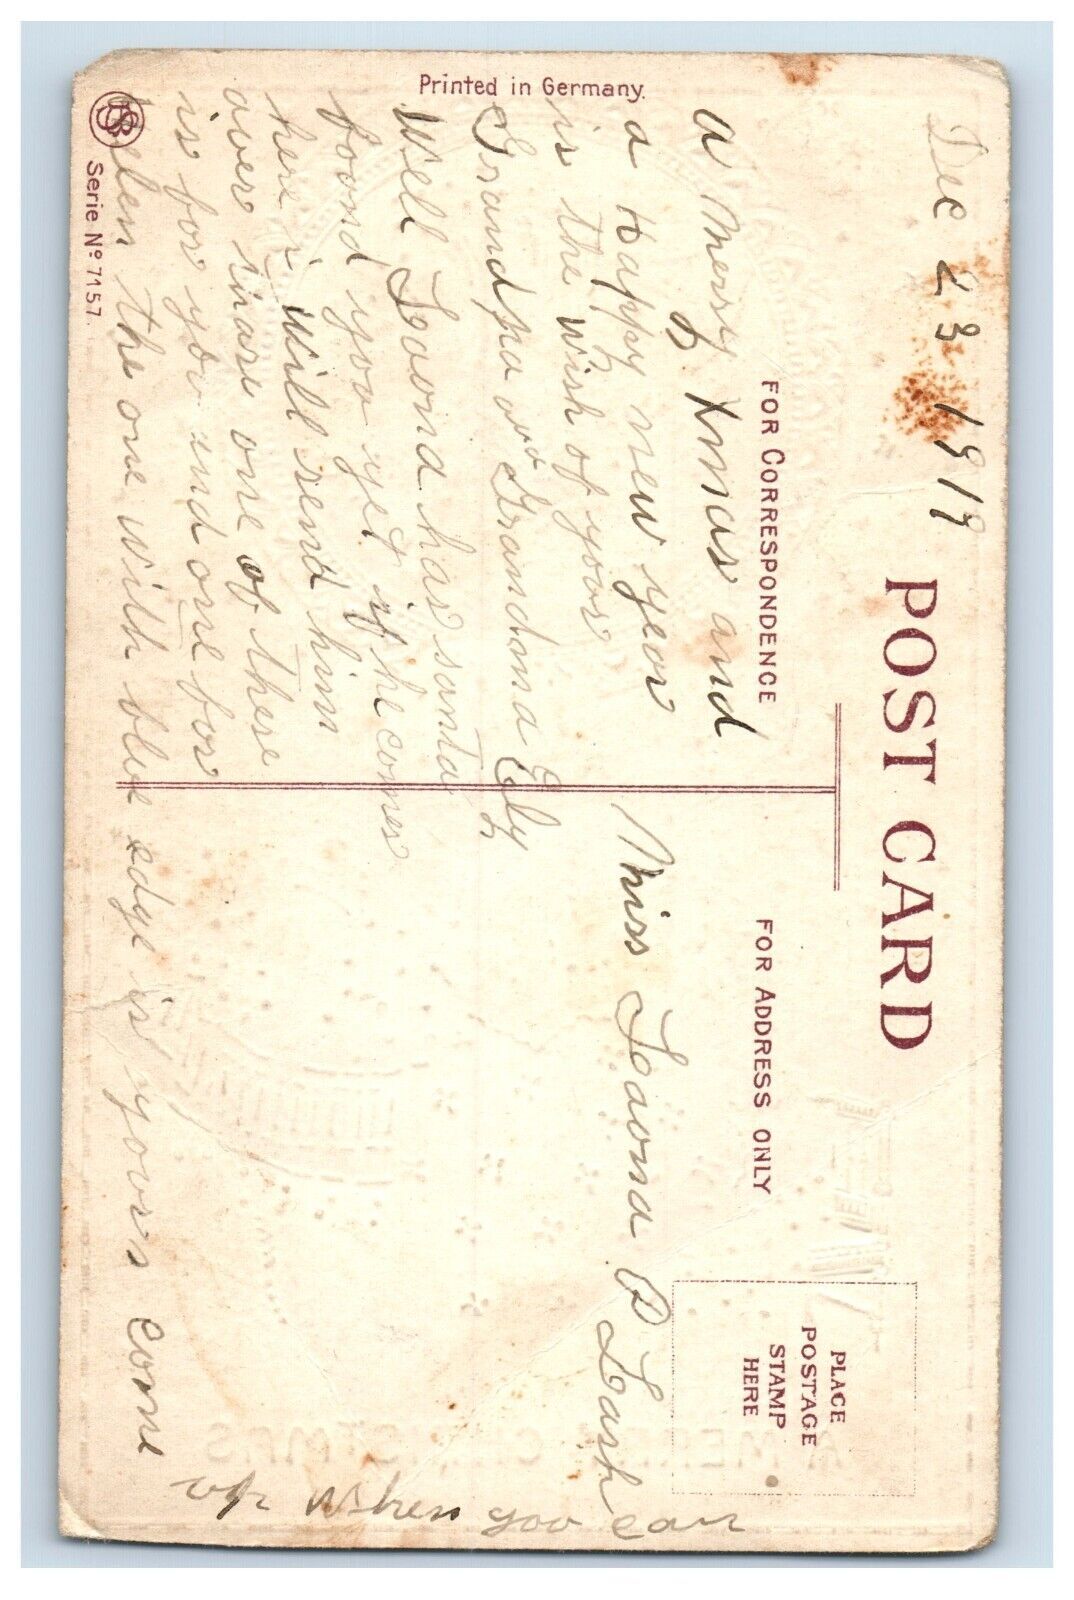 Dec 23 1919
POST CARD
FOR CORRESPONDENCE
FOR ADDRESS ONLY
PLACE
POSTAGE
STAMP
HERE
a Merry Xmas and
a Happy new year
is the wish of your
Grandpa and Grandma Ely
Well Leona has santa
foond yoo yet if he comes
here i will send him
over
one of these
is for yoo and one for
the one with blue edge is yoors come
up when yoo can
Miss Leona B Lash
Printed in Germany.
Serie № 7157.